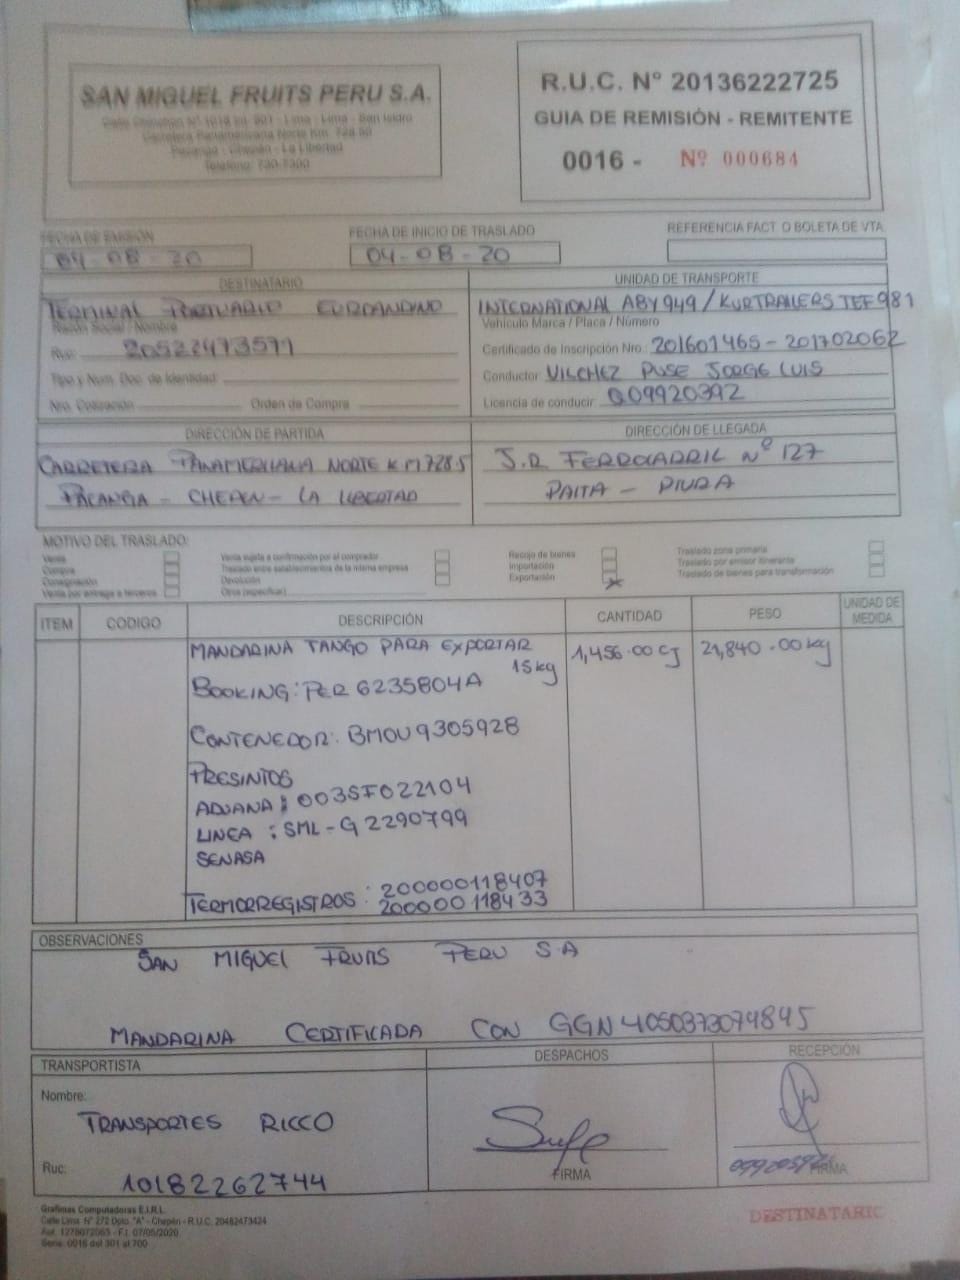 SAN MIGUEL FRUITS PERU S.A.
- Lima - Lima - San Isidro
Carretera Panamericana Norte Km. 728.50
Pacanga - Chepén - La Libertad
R.U.C. N° 20136222725
GUIA DE REMISIÓN - REMITENTE
0016 - Nº 000684
FECHA DE EMISIÓN
04-08-20
FECHA DE INICIO DE TRASLADO
04-08-20
REFERENCIA FACT. O BOLETA DE VTA.
DESTINATARIO
TERMINAL PORTUARIO EUROANDINO
Razón Social / Nombre
Ruc: 20522473571
Tipo y Num. Doc. de Identidad:
Nro. Cotización Orden de Compra
UNIDAD DE TRANSPORTE
INTERNATIONAL ABY949/KURTRAILERS TEF981
Vehículo Marca / Placa / Número
Certificado de Inscripción Nro.: 201601465-201702062
Conductor: VILCHEZ PUSE JORGE LUIS
Licencia de conducir: Q09920392
DIRECCIÓN DE PARTIDA
CARRETERA PANAMERICANA NORTE KM728.5
PACANGA - CHEPEN - LA LIBERTAD
DIRECCIÓN DE LLEGADA
J.R FERROCARRIL N° 127
PAITA - PIURA
MOTIVO DEL TRASLADO:
Venta
Compra
Consignación
Venta por entrega a terceros
Venta sujeta a confirmación por el comprador
Traslado entre establecimientos de la misma empresa
Devolución
Otros (especificar)
Recojo de bienes
Importación
Exportación X
Traslado zona primaria
Traslado por emisor itinerante
Traslado de bienes para transformación
ITEM CODIGO DESCRIPCIÓN CANTIDAD PESO UNIDAD DE MEDIDA
MANDARINA TANGO PARA EXPORTAR 1,456.00 CJ 21,840.00 kg
15kg
BOOKING: PER 6235804A
CONTENEDOR: BMOU 9305928
PRESINTOS
ADUANA: 003SF022104
LINEA : SML-G2290799
SENASA
TERMORREGISTROS : 200000118407
200000118433
OBSERVACIONES
SAN MIGUEL FRUITS PERU S.A
MANDARINA CERTIFICADA CON GGN 4050373074845
TRANSPORTISTA
Nombre:
TRANSPORTES RICCO
Ruc: 10182262744
DESPACHOS
FIRMA
RECEPCIÓN
FIRMA
Grafinas Computadoras E.I.R.L.
Calle Lima N° 272 Dpto. "A" - Chepén - R.U.C. 20482473424
Aut. 1278072063 - F.I. 07/05/2020
Serie: 0016 del 301 al 700
DESTINATARIO